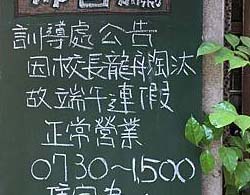 訓導處公告
因校長龍舟淘汰
故端午連假
正常營業
0730~1500